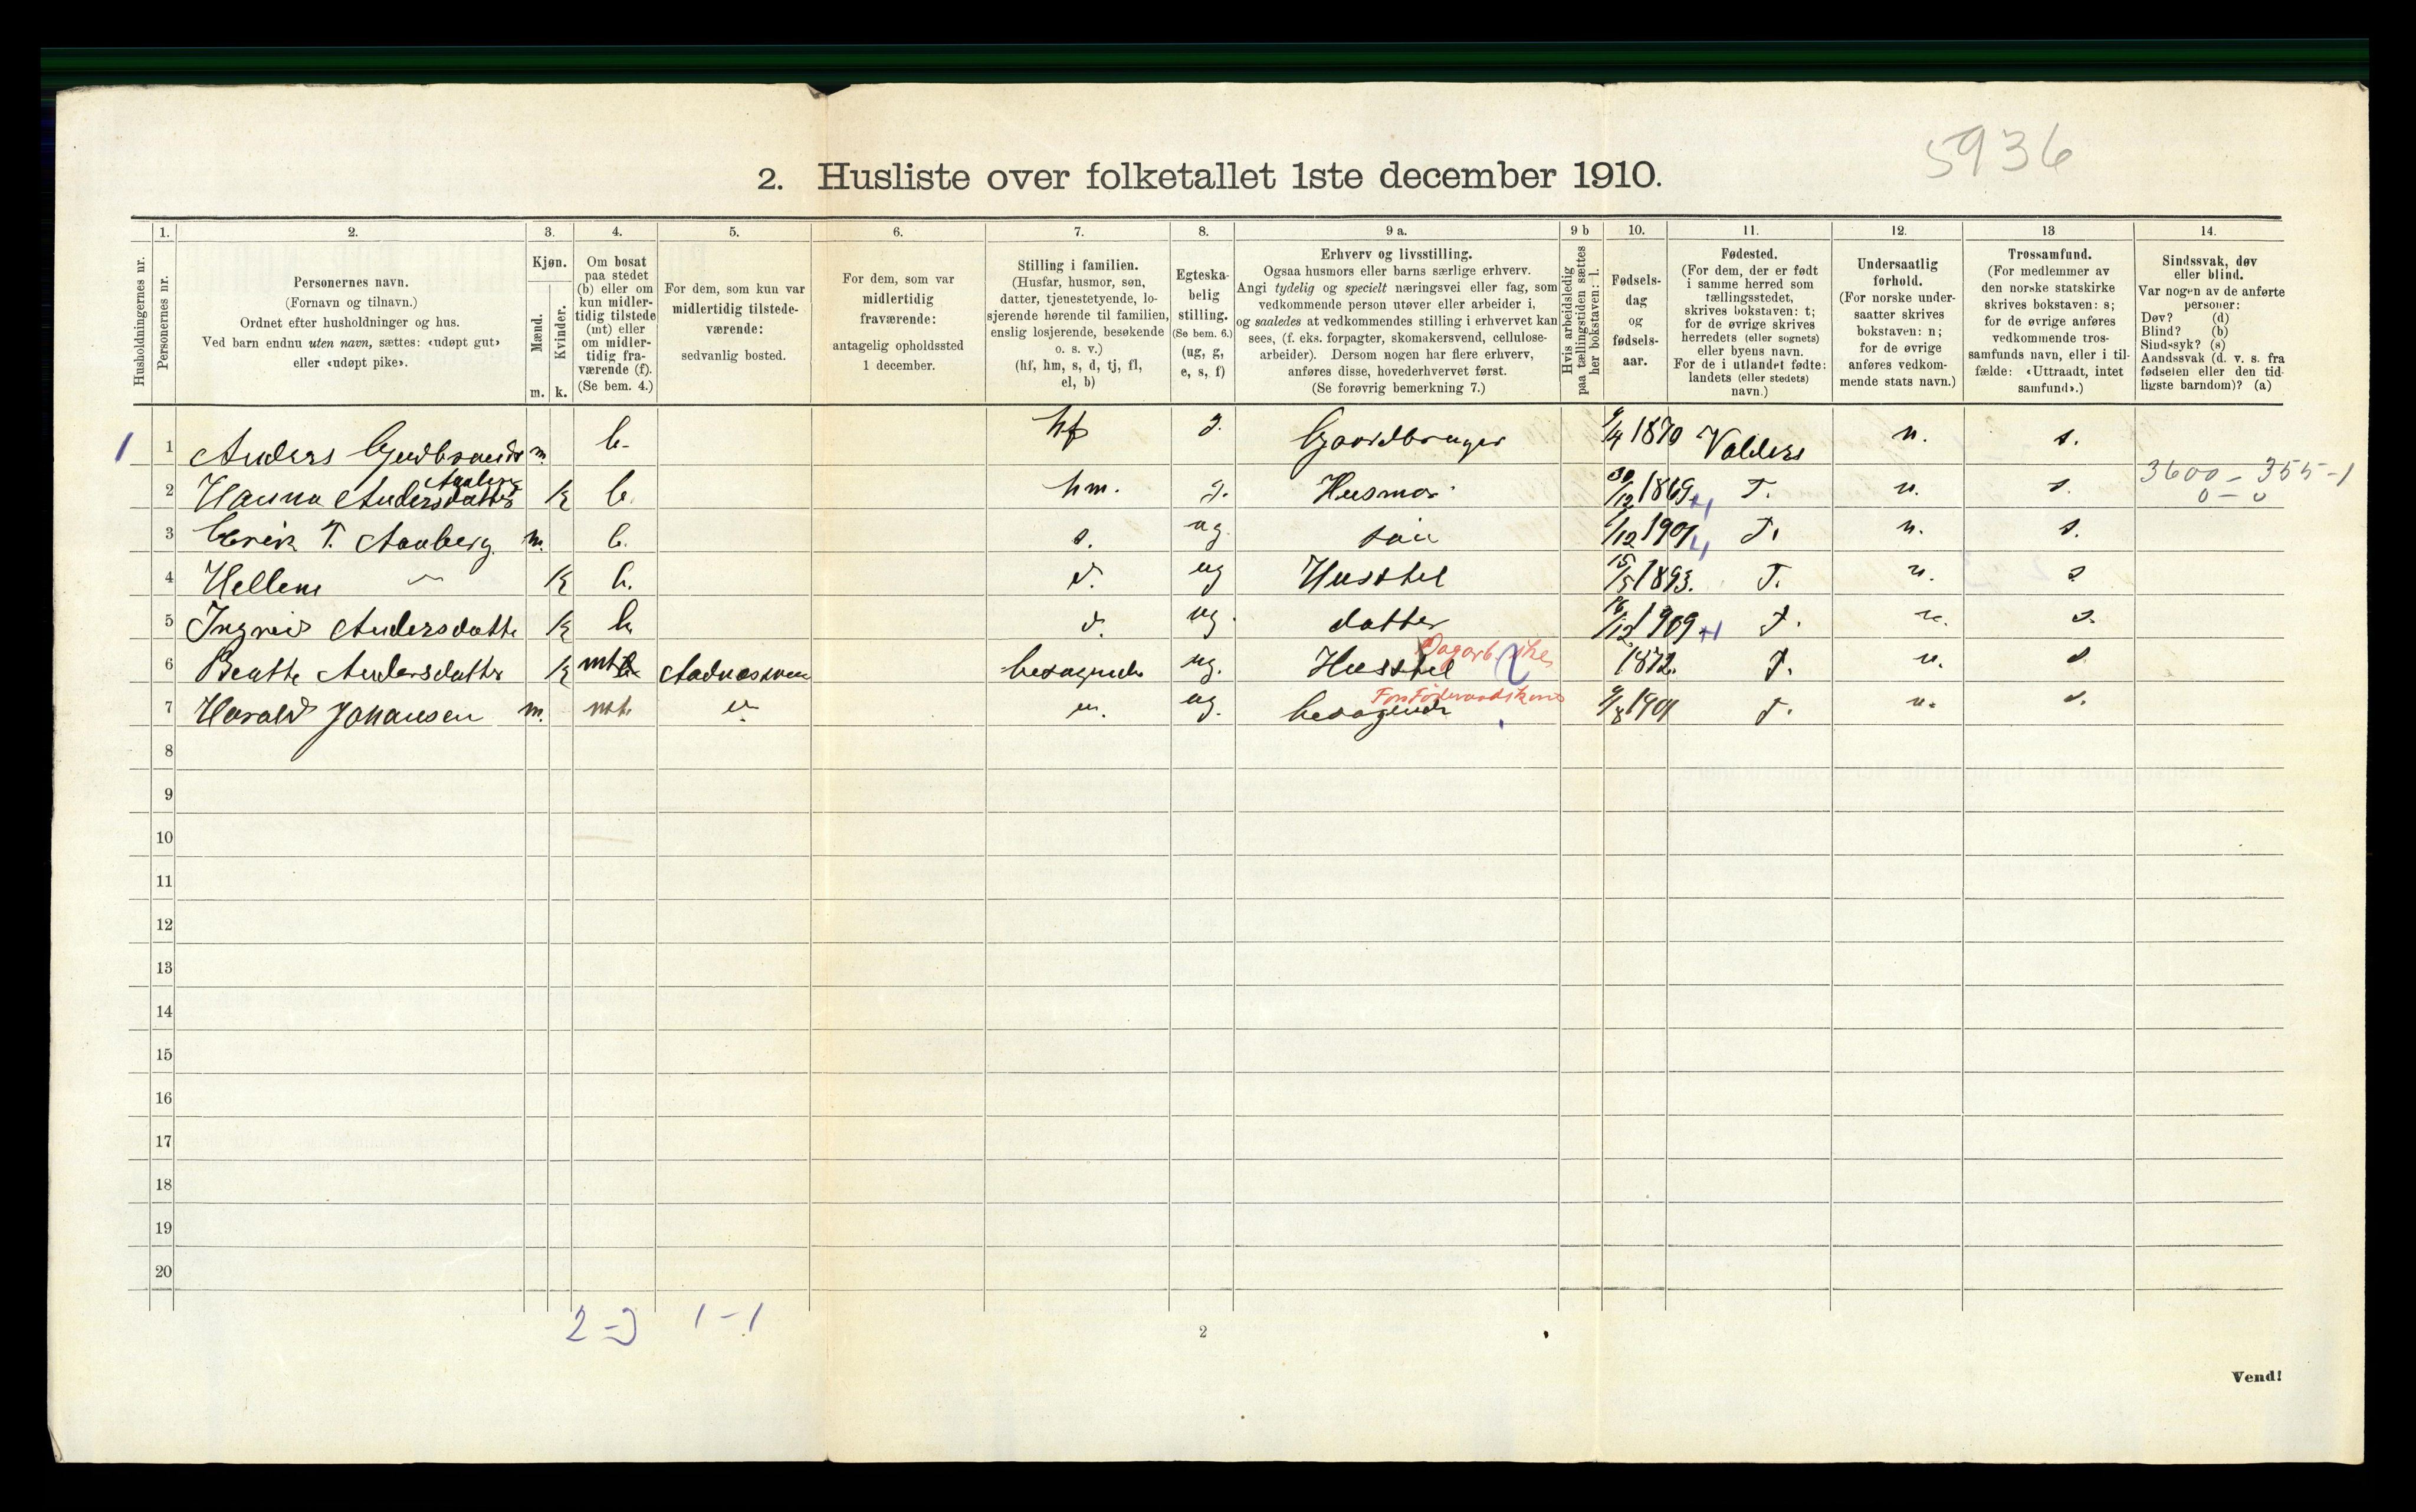 5936
2. Husliste over folketallet 1ste december 1910.
1. 2. 3. 4. 5. 6. 7. 8. 9 a. 9 b 10. 11. 12. 13 14.
Husholdningernes nr.
Personernes nr.
Personernes navn.
(Fornavn og tilnavn.)
Ordnet efter husholdninger og hus.
Ved barn endnu uten navn, sættes: «udøpt gut»
eller «udøpt pike».
Kjøn.
Mænd.
Kvinder.
m. k.
Om bosat
paa stedet
(b) eller om
kun midler-
tidig tilstede
(mt) eller
om midler-
tidig fra-
værende (f).
(Se bem. 4.)
For dem, som kun var
midlertidig tilstede-
værende:
sedvanlig bosted.
For dem, som var
midlertidig
fraværende:
antagelig opholdssted
1 december.
Stilling i familien.
(Husfar, husmor, søn,
datter, tjenestetyende, lo-
sjerende hørende til familien,
enslig losjerende, besøkende
o. s. v.)
(hf, hm, s, d, tj, fl,
el, b)
Egteska-
belig
stilling.
(Se bem. 6.)
(ug, g,
e, s, f)
Erhverv og livsstilling.
Ogsaa husmors eller barns særlige erhverv.
Angi tydelig og specielt næringsvei eller fag, som
vedkommende person utøver eller arbeider i,
og saaledes at vedkommendes stilling i erhvervet kan
sees, (f. eks. forpagter, skomakersvend, cellulose-
arbeider). Dersom nogen har flere erhverv,
anføres disse, hovederhvervet først.
(Se forøvrig bemerkning 7.)
Hvis arbeidsledig
paa tællingstiden sættes
her bokstaven: l.
Fødsels-
dag
og
fødsels-
aar.
Fødested.
(For dem, der er født
i samme herred som
tællingsstedet,
skrives bokstaven: t;
for de øvrige skrives
herredets (eller sognets)
eller byens navn.
For de i utlandet fødte:
landets (eller stedets)
navn.)
Undersaatlig
forhold.
(For norske under-
saatter skrives
bokstaven: n;
for de øvrige
anføres vedkom-
mende stats navn.)
Trossamfund.
(For medlemmer av
den norske statskirke
skrives bokstaven: s;
for de øvrige anføres
vedkommende tros-
samfunds navn, eller i til-
fælde: «Uttraadt, intet
samfund».)
Sindssvak, døv
eller blind.
Var nogen av de anførte
personer:
Døv? (d)
Blind? (b)
Sindssyk? (s)
Aandssvak (d. v. s. fra
fødselen eller den tid-
ligste barndom)? (a)
1 1 Anders Gudbrands m. b. hf g. Gaardbruger 1870 Valders n. s.
2 Hanna Andersdatter k b. hm. g. Husmor 30/12 1869 T. n. s. 3600 - 355 - 1
0 - 0
3 T. Aaberg m. b. s. ug søn 1901 T. n. s.
4 Hellene k b. d. ug Husstel 15/5 1893. T. n. s
5 Ingrid Andersdatte k b d. ug. datter 16/12 1909 T. n. s.
6 Beathe Andersdatter k mt besøgende ug. Husstel 1872. T. n. s
7 Harald Johansen m. mt. ug. besøgende 1901 T. n. s.
8
9
10
11
12
13
14
15
16
17
18
19
20
1 - 1
2
Vend!